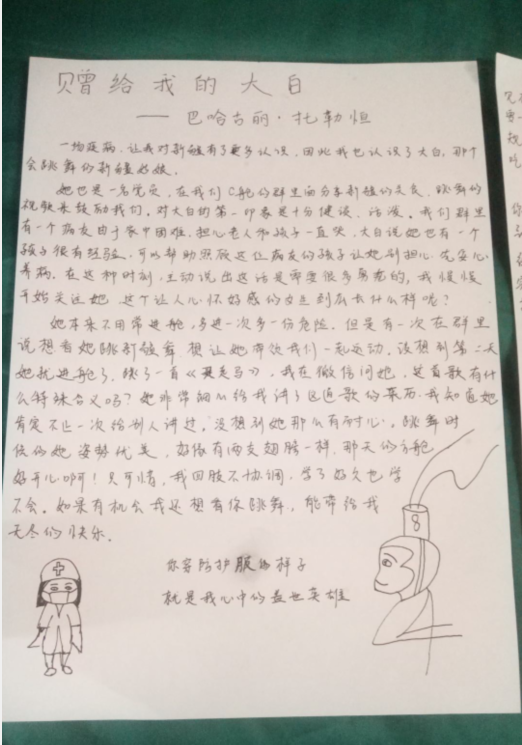 赠给我的大白
—— 巴哈古丽·托勒恒
一场疫病,让我对新疆有了更多认识,因此我也认识了大白,那个
会跳舞的新疆姑娘。
她也是一名党员,在我们C舱的群里面分享新疆的美食、跳舞的
视频来鼓励我们。对大白的第一印象是十分健谈、活泼。我们群里
有一个病友由于家中困难,担心老人和孩子一直哭,大白说她也有一个
孩子很有经验,可以帮助照顾这位病友的孩子让她别担心,先安心
养病。在这种时刻,主动说出这话是需要很多勇气的,我慢慢
开始关注她,这个让人心怀好感的女生到底长什么样呢?
她本来不用常进舱,多进一次多一份危险。但是有一次在群里
说想看她跳新疆舞,想让她带领我们一起运动。没想到第二天
她就进舱了。跳了一首《黑走马》,我在微信问她,这首歌有什
么特殊含义吗?她非常细心给我讲了这首歌的来历。我知道她
肯定不止一次给别人讲过,没想到她那么有耐心,跳舞时
候的她姿势优美,好像有两支翅膀一样,那天的方舱
好开心啊!只可惜,我四肢不协调,学了好久也学
不会。如果有机会我还想看你跳舞,能带给我
无尽的快乐。
你穿防护服的样子
就是我心中的盖世英雄
8